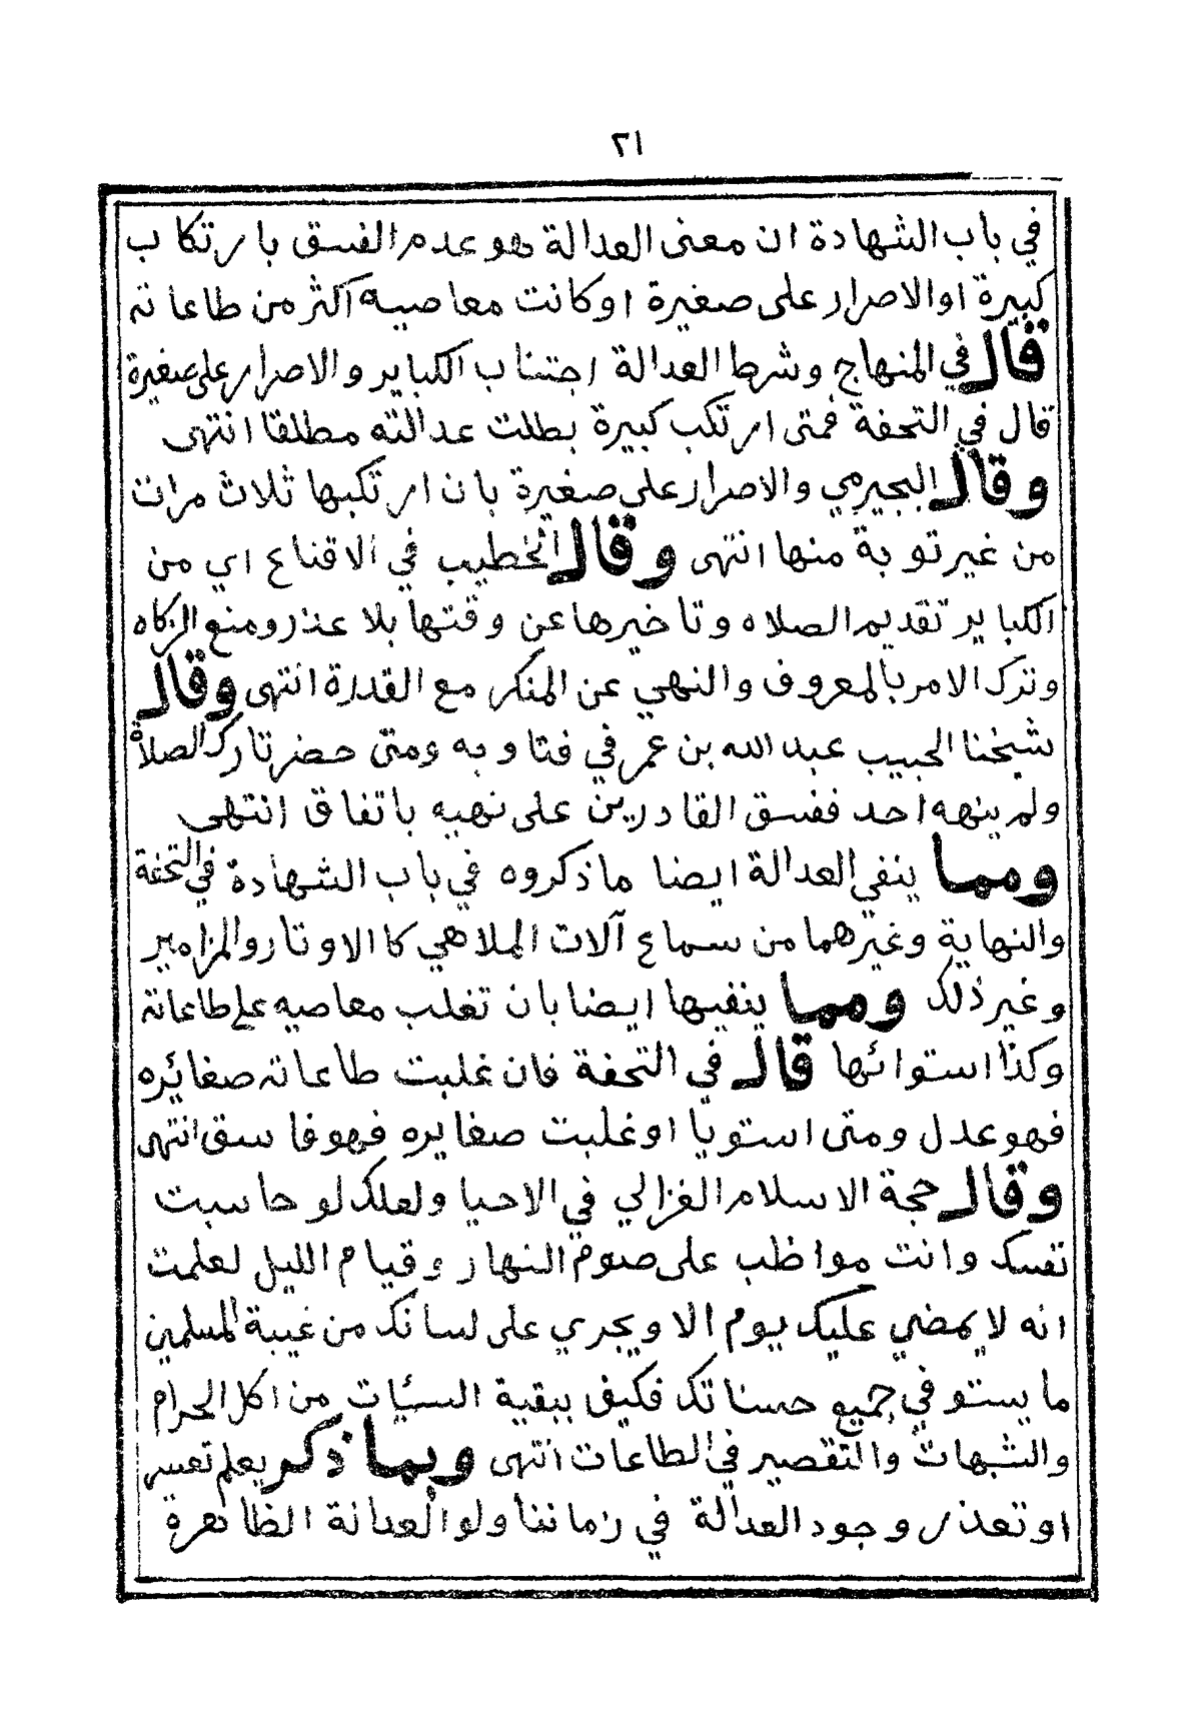 ٢١
في باب الشهادة ان معنى العدالة هو عدم الفسق بارتكاب
كبيرة او الاصرار على صغيرة او كانت معاصيه اكثر من طاعاته
قال في المنهاج وشرط العدالة اجتناب الكباير والاصرار على صغيرة
قال في التحفة فمتى ارتكب كبيرة بطلت عدالته مطلقا انتهى
وقال البجيرمي والاصرار على صغيرة بان ارتكبها ثلاث مرات
من غير توبة منها انتهى وقال الخطيب في الاقناع اي من
الكباير تقديم الصلاه وتاخيرها عن وقتها بلا عذر ومنع الزكاه
وترك الامر بالمعروف والنهي عن المنكر مع القدرة انتهى وقال
شيخنا الحبيب عبد الله بن عمر في فتاويه ومتى حضر تارك الصلاة
ولم ينهه احد ففسق القادرين على نهيه باتفاق انتهى
ومما ينفي العدالة ايضا ما ذكروه في باب الشهادة في التحفة
والنهاية وغيرهما من سماع آلات الملاهي كالاوتار والمزامير
وغير ذلك ومما ينفيها ايضا بان تغلب معاصيه على طاعاته
وكذا استوائها قال في التحفة فان غلبت طاعاته صغائره
فهو عدل ومتى استويا او غلبت صغايره فهو فاسق انتهى
وقال حجة الاسلام الغزالي في الاحيا ولعلك لو حاسبت
نفسك وانت مواظب على صوم النهار وقيام الليل لعلمت
انه لا يمضي عليك يوم الا ويجري على لسانك من غيبة المسلمين
ما يستوفي جميع حسناتك فكيف ببقية السيئات من اكل الحرام
والشبهات والتقصير في الطاعات انتهى وبما ذكر يعلم تعسر
او تعذر وجود العدالة في زماننا ولو العدالة الظاهرة